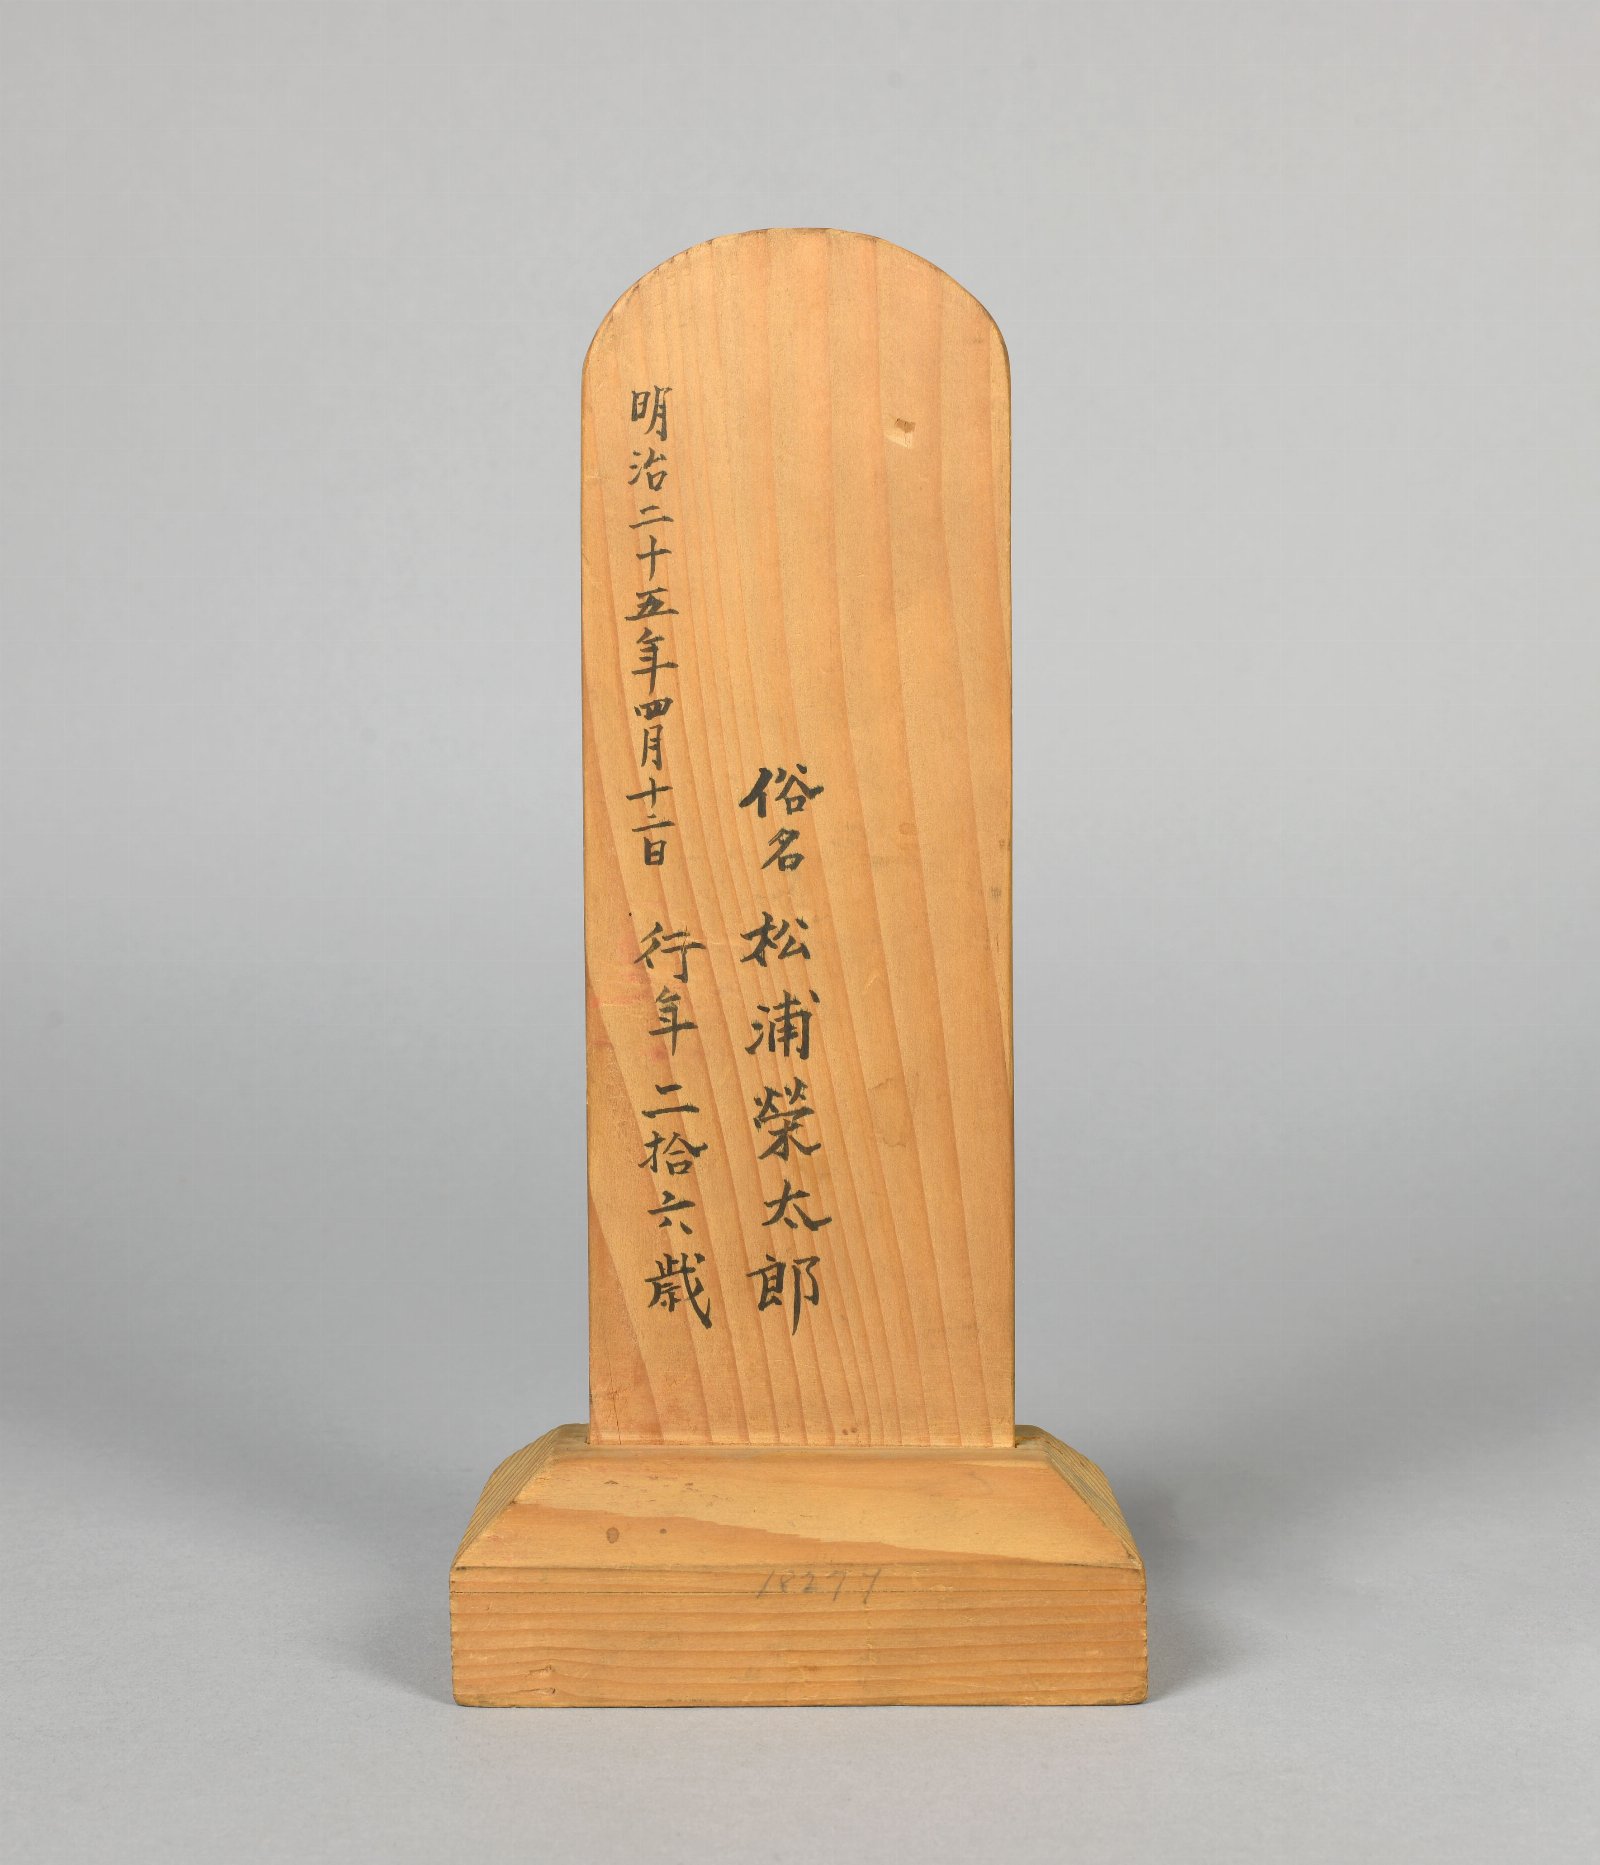 俗名 松浦榮太郎
明治二十五年四月十二日 行年二拾六歳
18277